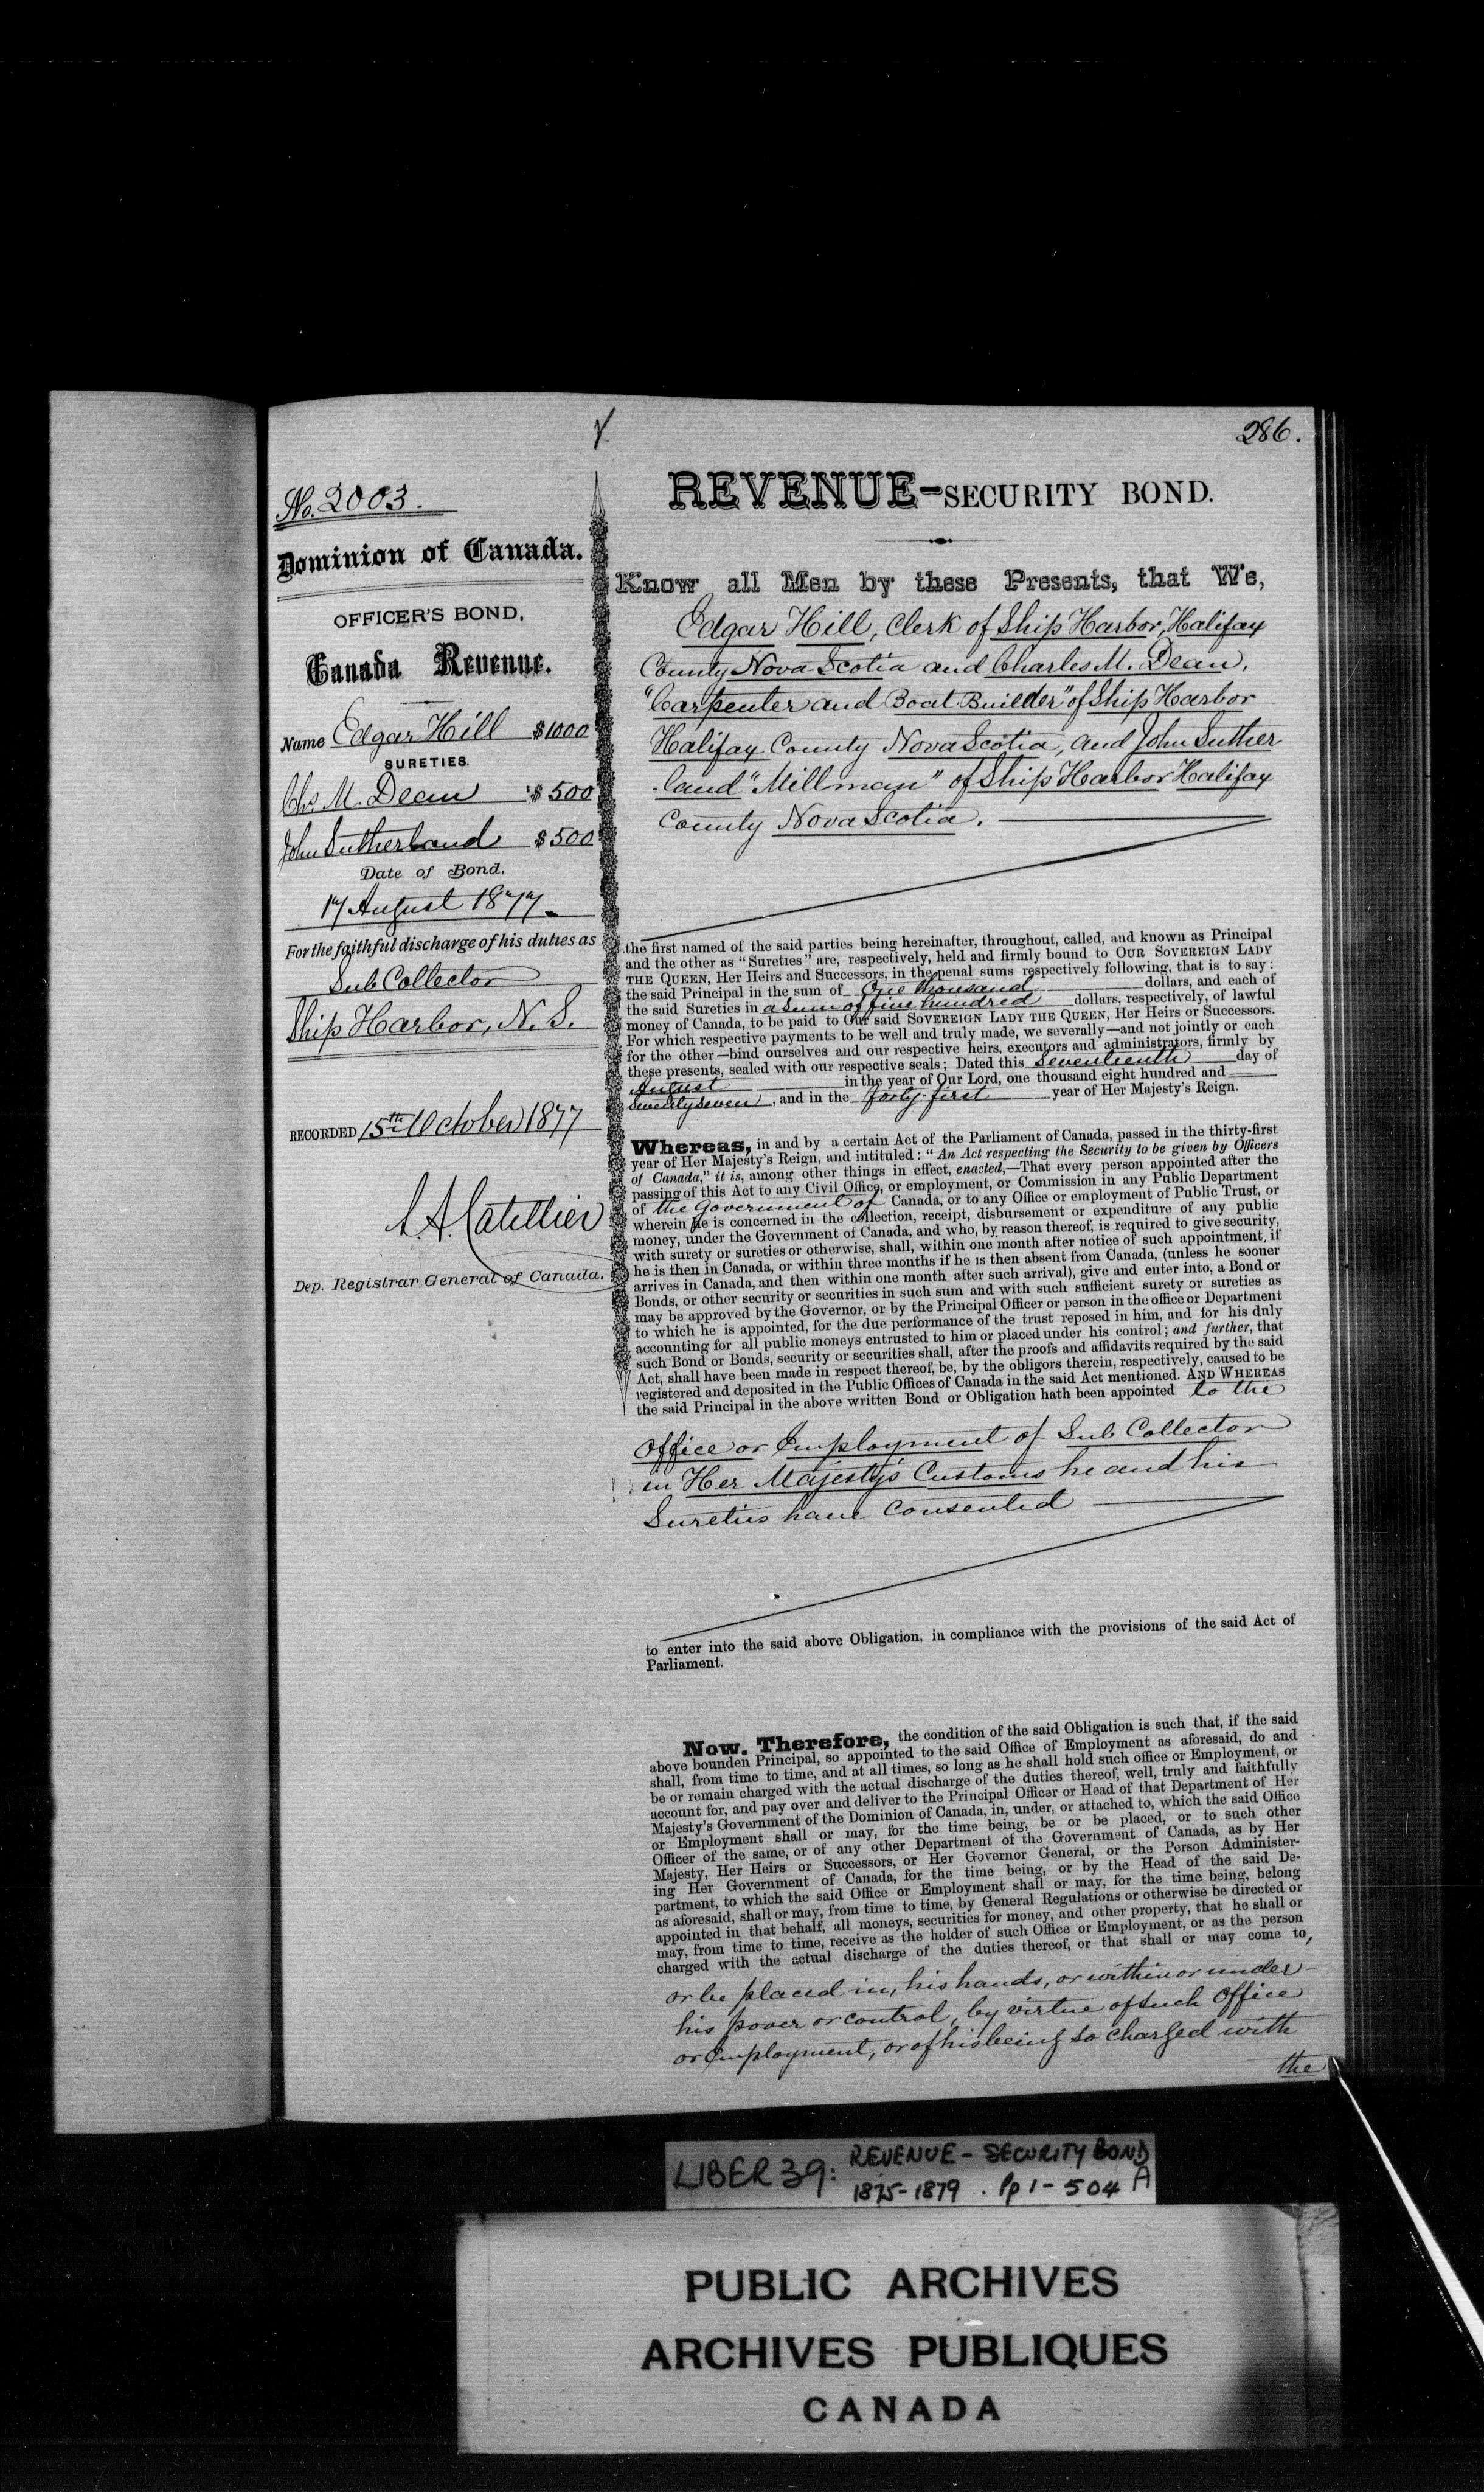 286.
No. 2003.
Dominion of Canada.
OFFICER'S BOND,
Canada Revenue.
Name Edgar Hill $1000
SURETIES.
Chs M. Dean $500
John Sutherland $500
Date of Bond.
17 August 1877.
For the faithful discharge of his duties as
Sub Collector
Ship Harbor, N. S.
RECORDED 15th October 1877
L. A. Catellier
Dep. Registrar General of Canada.
REVENUE-SECURITY BOND.
Know all Men by these Presents, that We,
Edgar Hill, Clerk of Ship Harbor, Halifax
County Nova Scotia and Charles M. Dean,
"Carpenter and Boat Builder" of Ship Harbor
Halifax County Nova Scotia, and John Suther
-land "Millman" of Ship Harbor Halifax
County Nova Scotia.
the first named of the said parties being hereinafter, throughout, called, and known as Principal
and the other as "Sureties" are, respectively, held and firmly bound to OUR SOVEREIGN LADY
THE QUEEN, Her Heirs and Successors, in the penal sums respectively following, that is to say:
the said Principal in the sum of One thousand dollars, and each of
the said Sureties in a sum of five hundred dollars, respectively, of lawful
money of Canada, to be paid to Our said SOVEREIGN LADY THE QUEEN, Her Heirs or Successors.
For which respective payments to be well and truly made, we severally—and not jointly or each
for the other—bind ourselves and our respective heirs, executors and administrators, firmly by
these presents, sealed with our respective seals; Dated this Seventeenth day of
August in the year of Our Lord, one thousand eight hundred and
Seventy seven, and in the forty-first year of Her Majesty's Reign.
Whereas, in and by a certain Act of the Parliament of Canada, passed in the thirty-first
year of Her Majesty's Reign, and intituled: "An Act respecting the Security to be given by Officers
of Canada," it is, among other things in effect, enacted,—That every person appointed after the
passing of this Act to any Civil Office, or employment, or Commission in any Public Department
of the Government of Canada, or to any Office or employment of Public Trust, or
wherein he is concerned in the collection, receipt, disbursement or expenditure of any public
money, under the Government of Canada, and who, by reason thereof, is required to give security,
with surety or sureties or otherwise, shall, within one month after notice of such appointment, if
he is then in Canada, or within three months if he is then absent from Canada, (unless he sooner
arrives in Canada, and then within one month after such arrival), give and enter into, a Bond or
Bonds, or other security or securities in such sum and with such sufficient surety or sureties as
may be approved by the Governor, or by the Principal Officer or person in the office or Department
to which he is appointed, for the due performance of the trust reposed in him, and for his duly
accounting for all public moneys entrusted to him or placed under his control; and further, that
such Bond or Bonds, security or securities shall, after the proofs and affidavits required by the said
Act, shall have been made in respect thereof, be, by the obligors therein, respectively, caused to be
registered and deposited in the Public Offices of Canada in the said Act mentioned. AND WHEREAS
the said Principal in the above written Bond or Obligation hath been appointed to the
Office or Employment of Sub Collector
in Her Majesty's Customs he and his
Sureties have consented
to enter into the said above Obligation, in compliance with the provisions of the said Act of
Parliament.
Now, Therefore, the condition of the said Obligation is such that, if the said
above bounden Principal, so appointed to the said Office of Employment as aforesaid, do and
shall, from time to time, and at all times, so long as he shall hold such office or Employment, or
be or remain charged with the actual discharge of the duties thereof, well, truly and faithfully
account for, and pay over and deliver to the Principal Officer or Head of that Department of Her
Majesty's Government of the Dominion of Canada, in, under, or attached to, which the said Office
or Employment shall or may, for the time being, be or be placed, or to such other
Officer of the same, or of any other Department of the Government of Canada, as by Her
Majesty, Her Heirs or Successors, or Her Governor General, or the Person Administer-
ing Her Government of Canada, for the time being, or by the Head of the said De-
partment, to which the said Office or Employment shall or may, for the time being, belong
as aforesaid, shall or may, from time to time, by General Regulations or otherwise be directed or
appointed in that behalf, all moneys, securities for money, and other property, that he shall or
may, from time to time, receive as the holder of such Office or Employment, or as the person
charged with the actual discharge of the duties thereof, or that shall or may come to,
or be placed in, his hands, or within or under
his power or control, by virtue of such Office
or Employment, or of his being so charged with
the
LIBER 39: REVENUE - SECURITY BOND
1875-1879 . Pp 1 - 504 A
PUBLIC ARCHIVES
ARCHIVES PUBLIQUES
CANADA